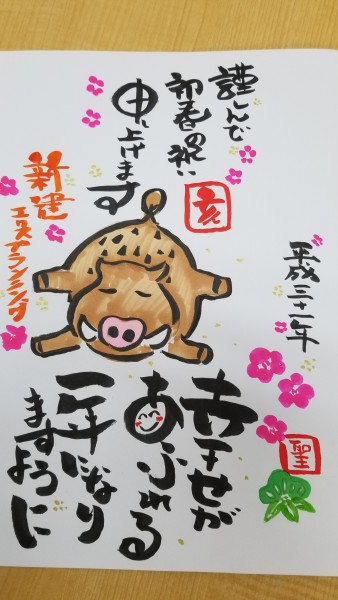 謹しんで
初春の祝い
申し上げます
亥
新建
エクスプランニング
平成三十一年
幸せが
あふれる
一年になり
ますように
聖